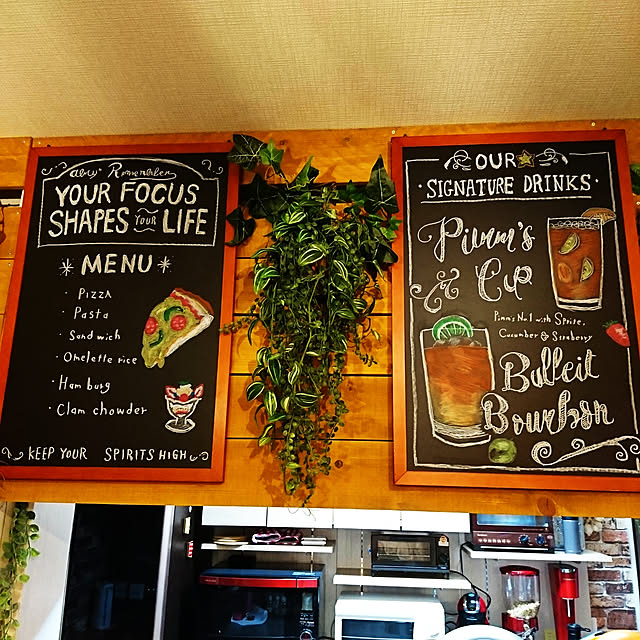 Always Remember
YOUR FOCUS
SHAPES YOUR LIFE
MENU
· Pizza
· Pasta
· Sandwich
· Omelette rice
· Hamburg
· Clam chowder
KEEP YOUR SPIRITS HIGH
OUR
· SIGNATURE DRINKS ·
Pimm's
& Cup
Pimm's No.1 with Sprite,
Cucumber & Straberry
Bulleit
Bourbon